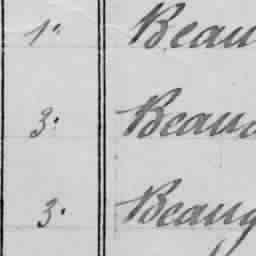 1. Beau
3. Beau
3. Beaug